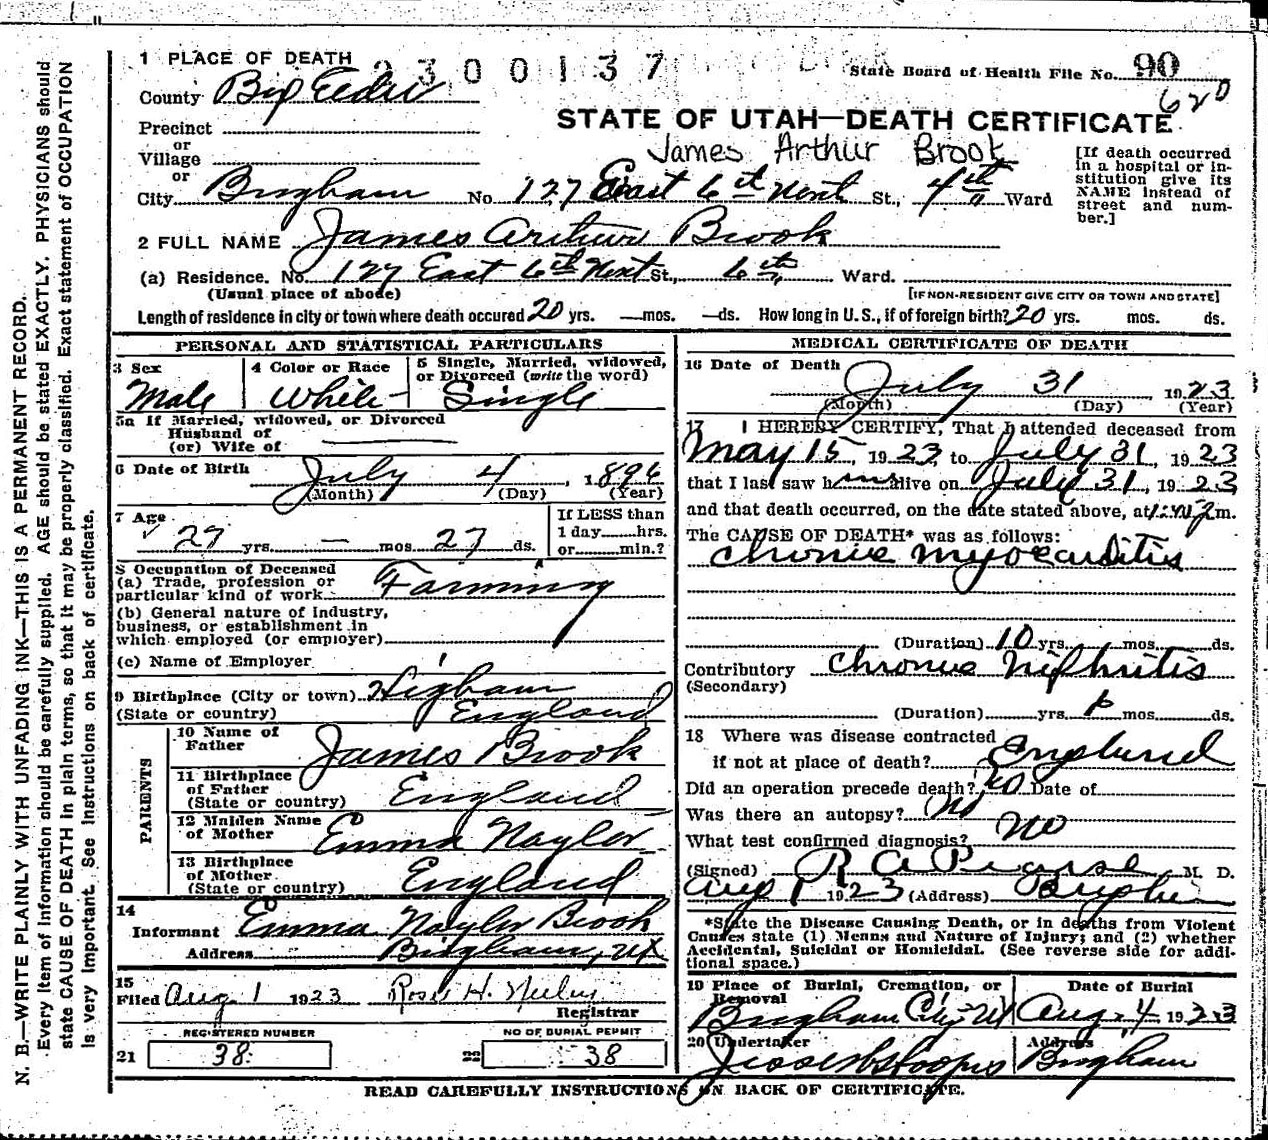 1 PLACE OF DEATH 2300137 State Board of Health File No. 90
County Box Elder 620
Precinct
or
Village
or
STATE OF UTAH—DEATH CERTIFICATE
James Arthur Brook
[If death occurred in a hospital or institution give its NAME instead of street and number.]
City Brigham No. 127 East 6th St., 4th Ward
2 FULL NAME James Arthur Brook
(a) Residence. No. 127 East 6th St., 6th Ward.
(Usual place of abode) [IF NON-RESIDENT GIVE CITY OR TOWN AND STATE]
Length of residence in city or town where death occured 20 yrs. —mos. —ds. How long in U.S., if of foreign birth? 20 yrs. mos. ds.
PERSONAL AND STATISTICAL PARTICULARS
3 Sex Male
4 Color or Race White
5 Single, Married, widowed, or Divorced (write the word) Single
5a If Married, widowed, or Divorced
Husband of
(or) Wife of
6 Date of Birth July 4, 1896
(Month) (Day) (Year)
7 Age 27 yrs. — mos. 27 ds.
If LESS than
1 day......hrs.
or......min.?
8 Occupation of Deceased
(a) Trade, profession or
particular kind of work Farming
(b) General nature of Industry,
business, or establishment in
which employed (or employer)
(c) Name of Employer
9 Birthplace (City or town)
(State or country) England
PARENTS
10 Name of
Father James Brook
11 Birthplace
of Father
(State or country) England
12 Maiden Name
of Mother Emma Naylor
13 Birthplace
of Mother
(State or country) England
14
Informant Emma Naylor Brook
Address Brigham, Ut
15
Filed Aug. 1 1923
Registrar
REGISTERED NUMBER
21 38
NO OF BURIAL PERMIT
22 38
MEDICAL CERTIFICATE OF DEATH
16 Date of Death July 31 1923
(Month) (Day) (Year)
17 I HEREBY CERTIFY, That I attended deceased from
May 15, 1923, to July 31, 1923
that I last saw him alive on July 31, 1923
and that death occurred, on the date stated above, at m.
The CAUSE OF DEATH* was as follows:
Chronic myocarditis
(Duration) 10 yrs. mos. ds.
Contributory Chronic Nephritis
(Secondary)
(Duration) yrs. mos. ds.
18 Where was disease contracted
if not at place of death? England
Did an operation precede death? No Date of
Was there an autopsy? No
What test confirmed diagnosis? no
(Signed) R A Pearse M. D.
Aug 1 1923 (Address) Brigham
*State the Disease Causing Death, or in deaths from Violent
Causes state (1) Means and Nature of Injury; and (2) whether
Accidental, Suicidal or Homicidal. (See reverse side for additional space.)
19 Place of Burial, Cremation, or Removal
Brigham City Ut
Date of Burial
Aug. 4 1923
20 Undertaker
Address
Brigham
READ CAREFULLY INSTRUCTIONS ON BACK OF CERTIFICATE.
N. B.—WRITE PLAINLY WITH UNFADING INK—THIS IS A PERMANENT RECORD.
Every item of information should be carefully supplied. AGE should be stated EXACTLY. PHYSICIANS should
state CAUSE OF DEATH in plain terms, so that it may be properly classified. Exact statement of OCCUPATION
is very important. See instructions on back of certificate.